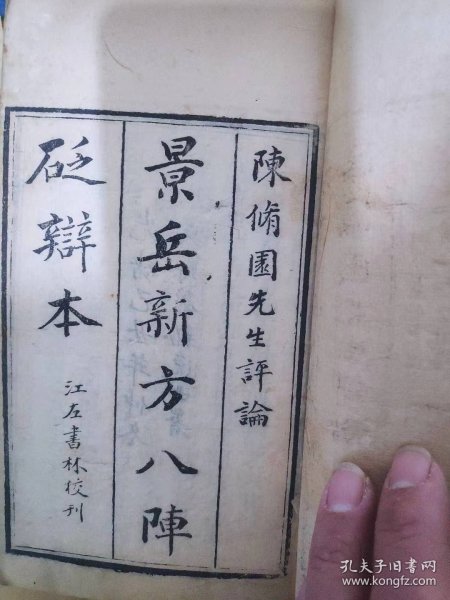 陳脩園先生評論
景岳新方八陣
砭辯本
江左書林校刊
孔夫子旧书网
www.kongfz.com